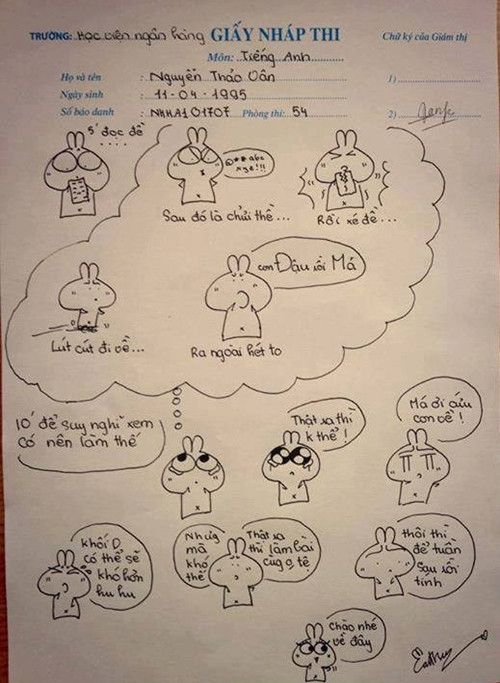 TRƯỜNG: Học viện ngân hàng GIẤY NHÁP THI
Chữ ký của Giám thị
Môn: Tiếng Anh
Họ và tên : Nguyễn Thảo Vân
1)
Ngày sinh : 11-04-1995
Số báo danh : NHHA101707 Phòng thi: 54
2)
5' đọc đề
....
@**abc
xyz!!!
Sau đó là chửi thề...
Rồi xé đề...
con Đậu rồi Má
Lút cút đi về...
Ra ngoài hét to
10' để suy nghĩ xem
có nên làm thế
Thật ra thì
k thể!
Má ơi cứu
con về!
khối D
có thể sẽ
khó hơn
hu hu
Nhưg
mà
khó
thế
Thật ra
thì làm bài
cũg o tệ
thôi thì
để tuần
sau rồi
tính
Chào nhé
về đây